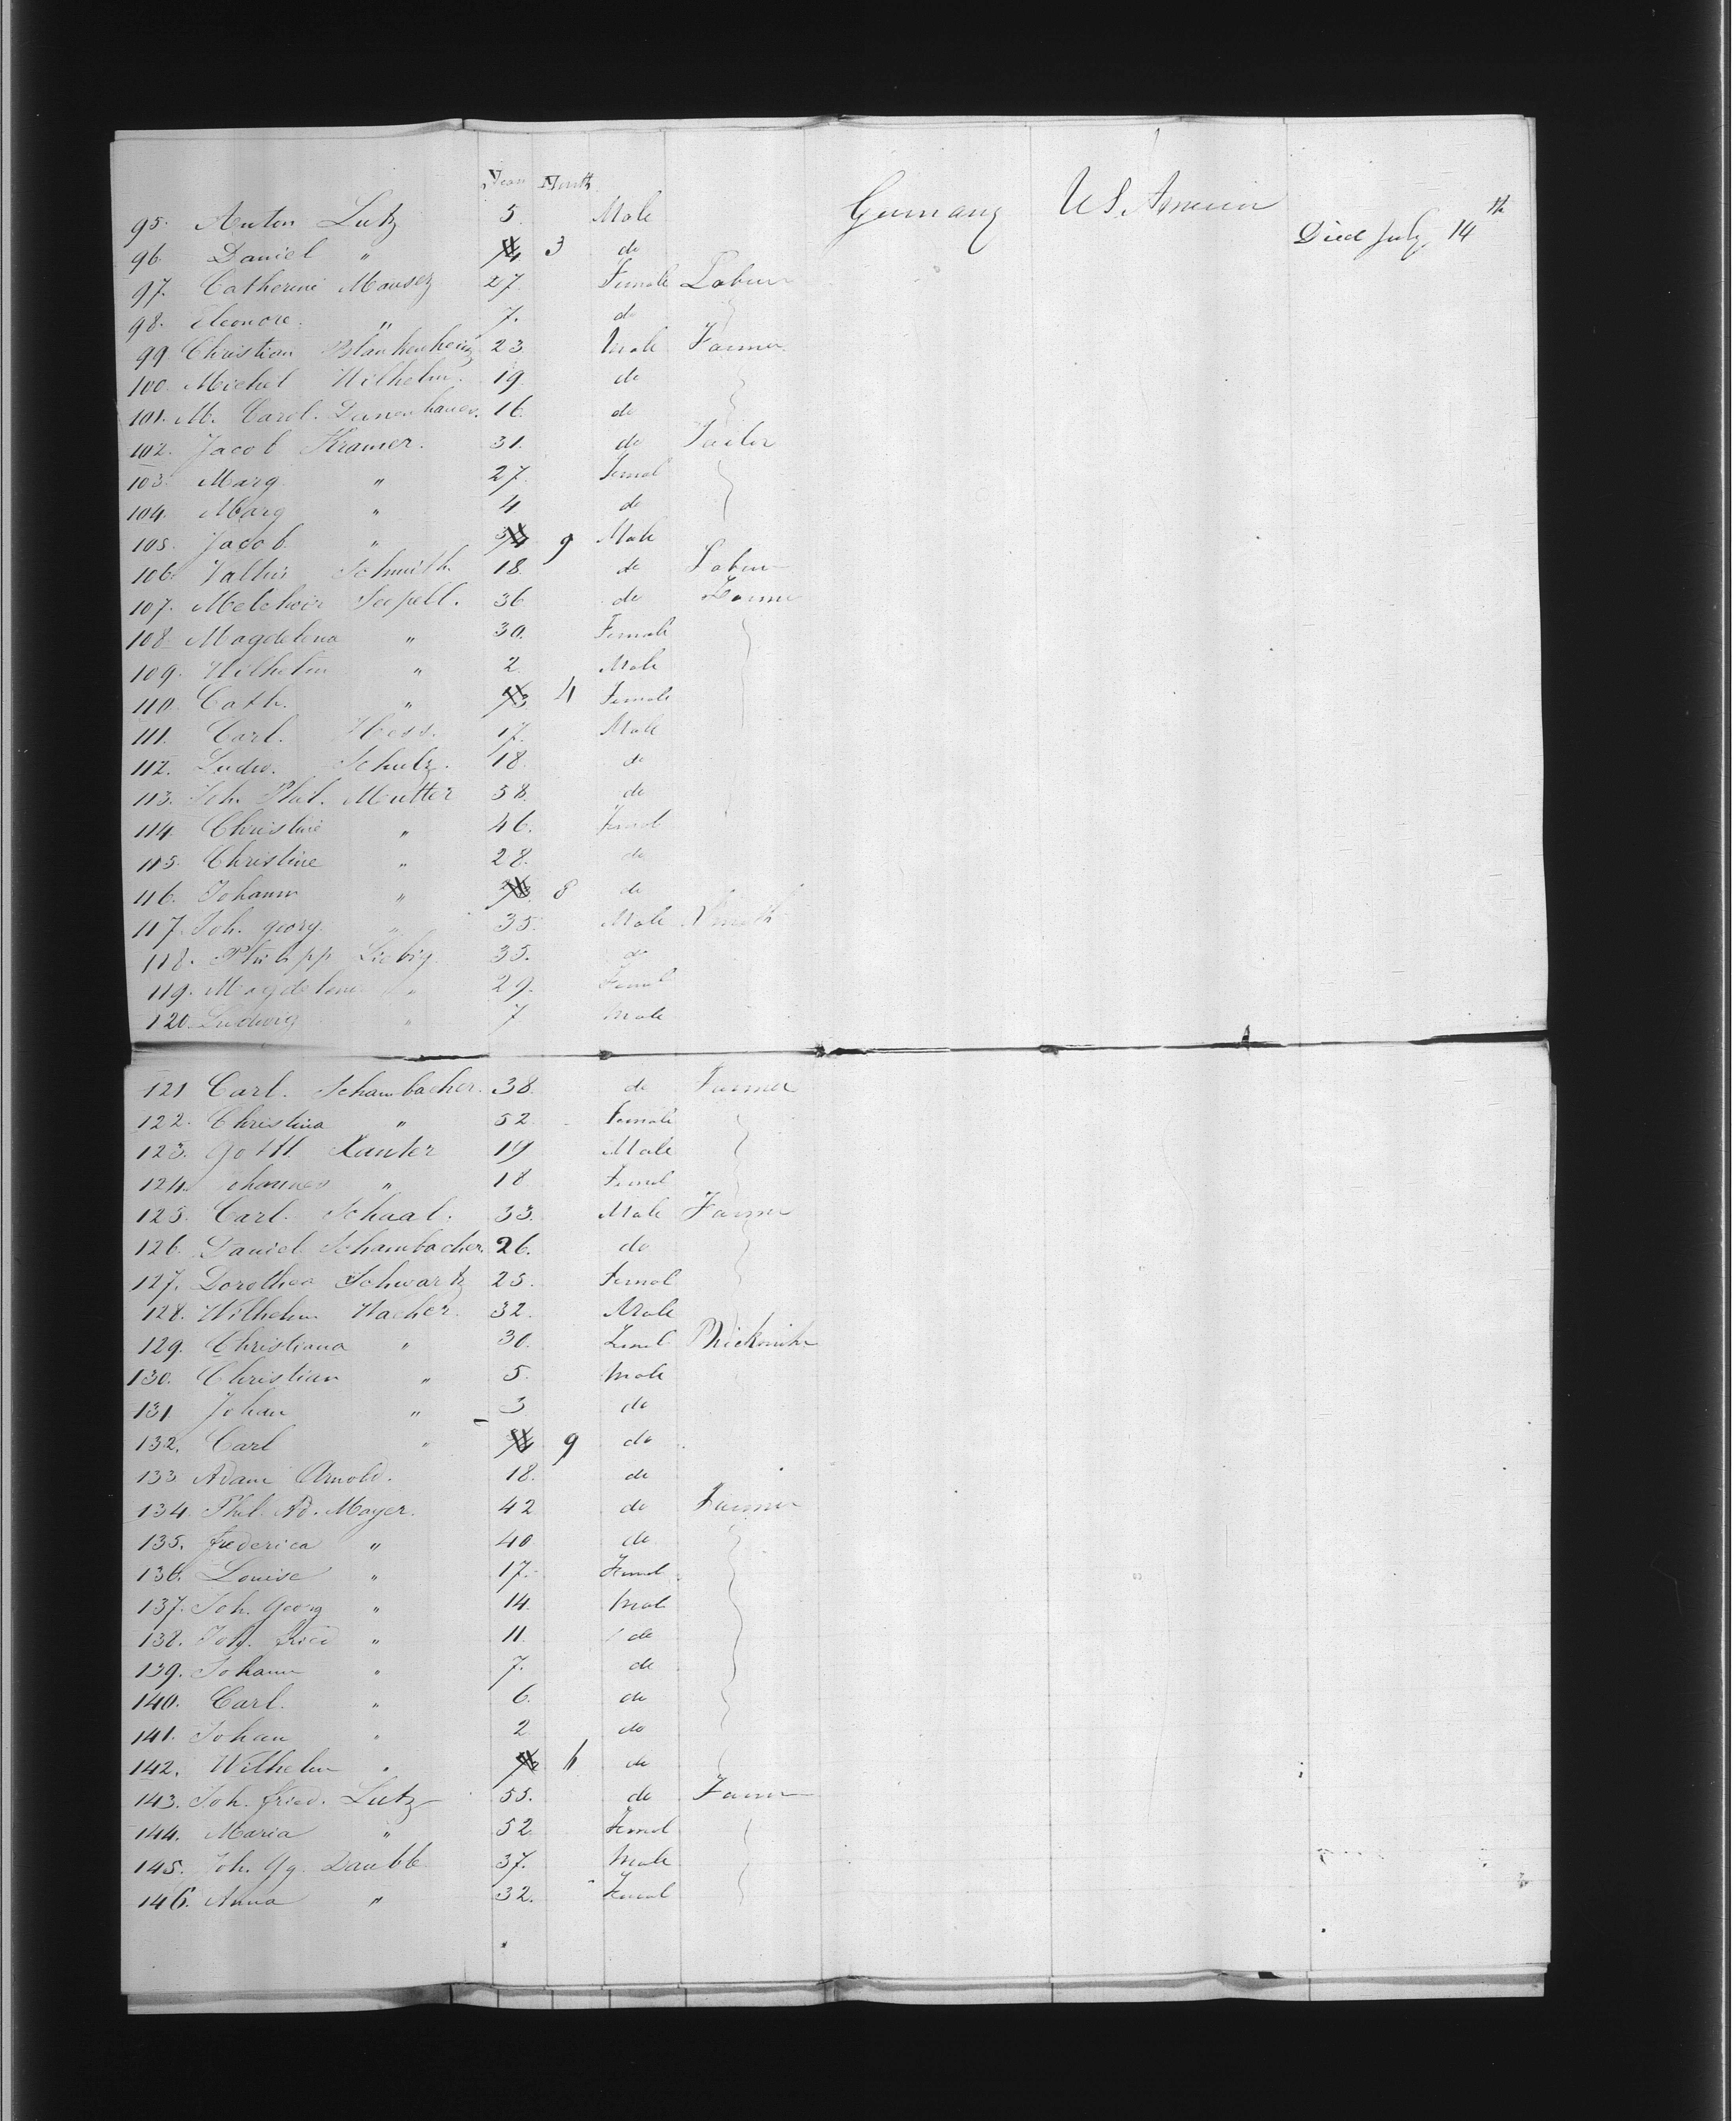 Years Month
95. Anton Lutz 5. Male Germany U S. America
96. Daniel " 3 do Died July 14th
97. Catherine Mausez 27. Female Labour
98. Eleonore " 7. do
99. Christian Blankenheinz 23 Male Farmer
100. Michel Wilhelm. 19. do
101. M. Carol. Danenhauer. 16. do
102. Jacob Kramer. 31. do Tailor
103. Marg " 27. Femal
104. Marg " 4 do
105. Jacob " 9 Male
106. Schmith. 18. do Labour
107. Melchior Seepell. 36 do Farmer
108. Magdelena " 30. Female
109. Wilhelm " 2. Male
110. Cath. " 4 Female
111. Carl. Hess. 17. Male
112. Ludw. Schulz. 18. do
113. Joh. Phil. Mutter 58. do
114. Christine " 46. Femal
115. Christine " 28. do
116. Johann " 8 do
117. Joh. georg. " 35. Male Smith
118. Philipp Liebig 35. do
119. Magdelena " 29. Femal
120. Ludwig " 7 Male
121 Carl. Schambacher. 38. do Farmer
122. Christina " 52 Female
123. Gottl. Kanter 19 Male
124. " 18. Femal
125. Carl. Schaal. 33. Male Farmer
126. Daniel Schambacher. 26. do
127. Dorothea Schwartz 25. Femal
128. Wilhelm Wacker. 32. Male
129. Christiana " 30. Femal
130. Christian " 5. Male
131 Johan " 3 do
132. Carl " 9 do
133 Adam Arnold. 18. do
134. Phil. Ad. Mayer. 42 do Farmer
135. frederica " 40 do
136. Louise " 17. Femal
137. Joh. Georg " 14. Mal
138. Joh. fried " 11. do
139. Johann " 7. do
140. Carl. " 6. do
141. Johan " 2 do
142. Wilhelm " do
143. Joh. fried. Lutz 55. do Farmer
144. Maria " 52 Femal
145. Joh. Gg. Daubb 37. Male
146. Anna " 32. Femal